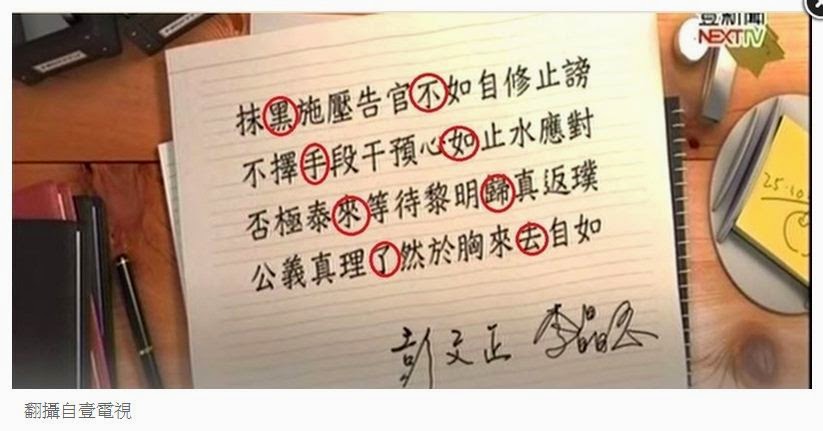 壹新聞
NEXTTV
抹黑施壓告官不如自修止謗
不擇手段干預心如止水應對
否極泰來等待黎明歸真返璞
公義真理了然於胸來去自如
彭文正 李晶玉
25.10
翻攝自壹電視